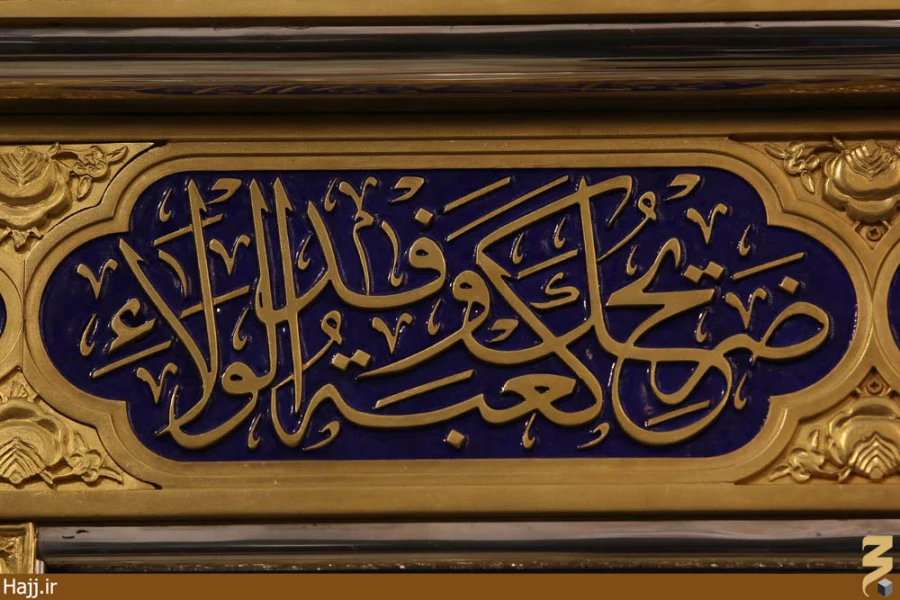 ضَرِيحُكَ كَعْبَةُ وَفْدِ الْوَلَاءِ
Hajj.ir